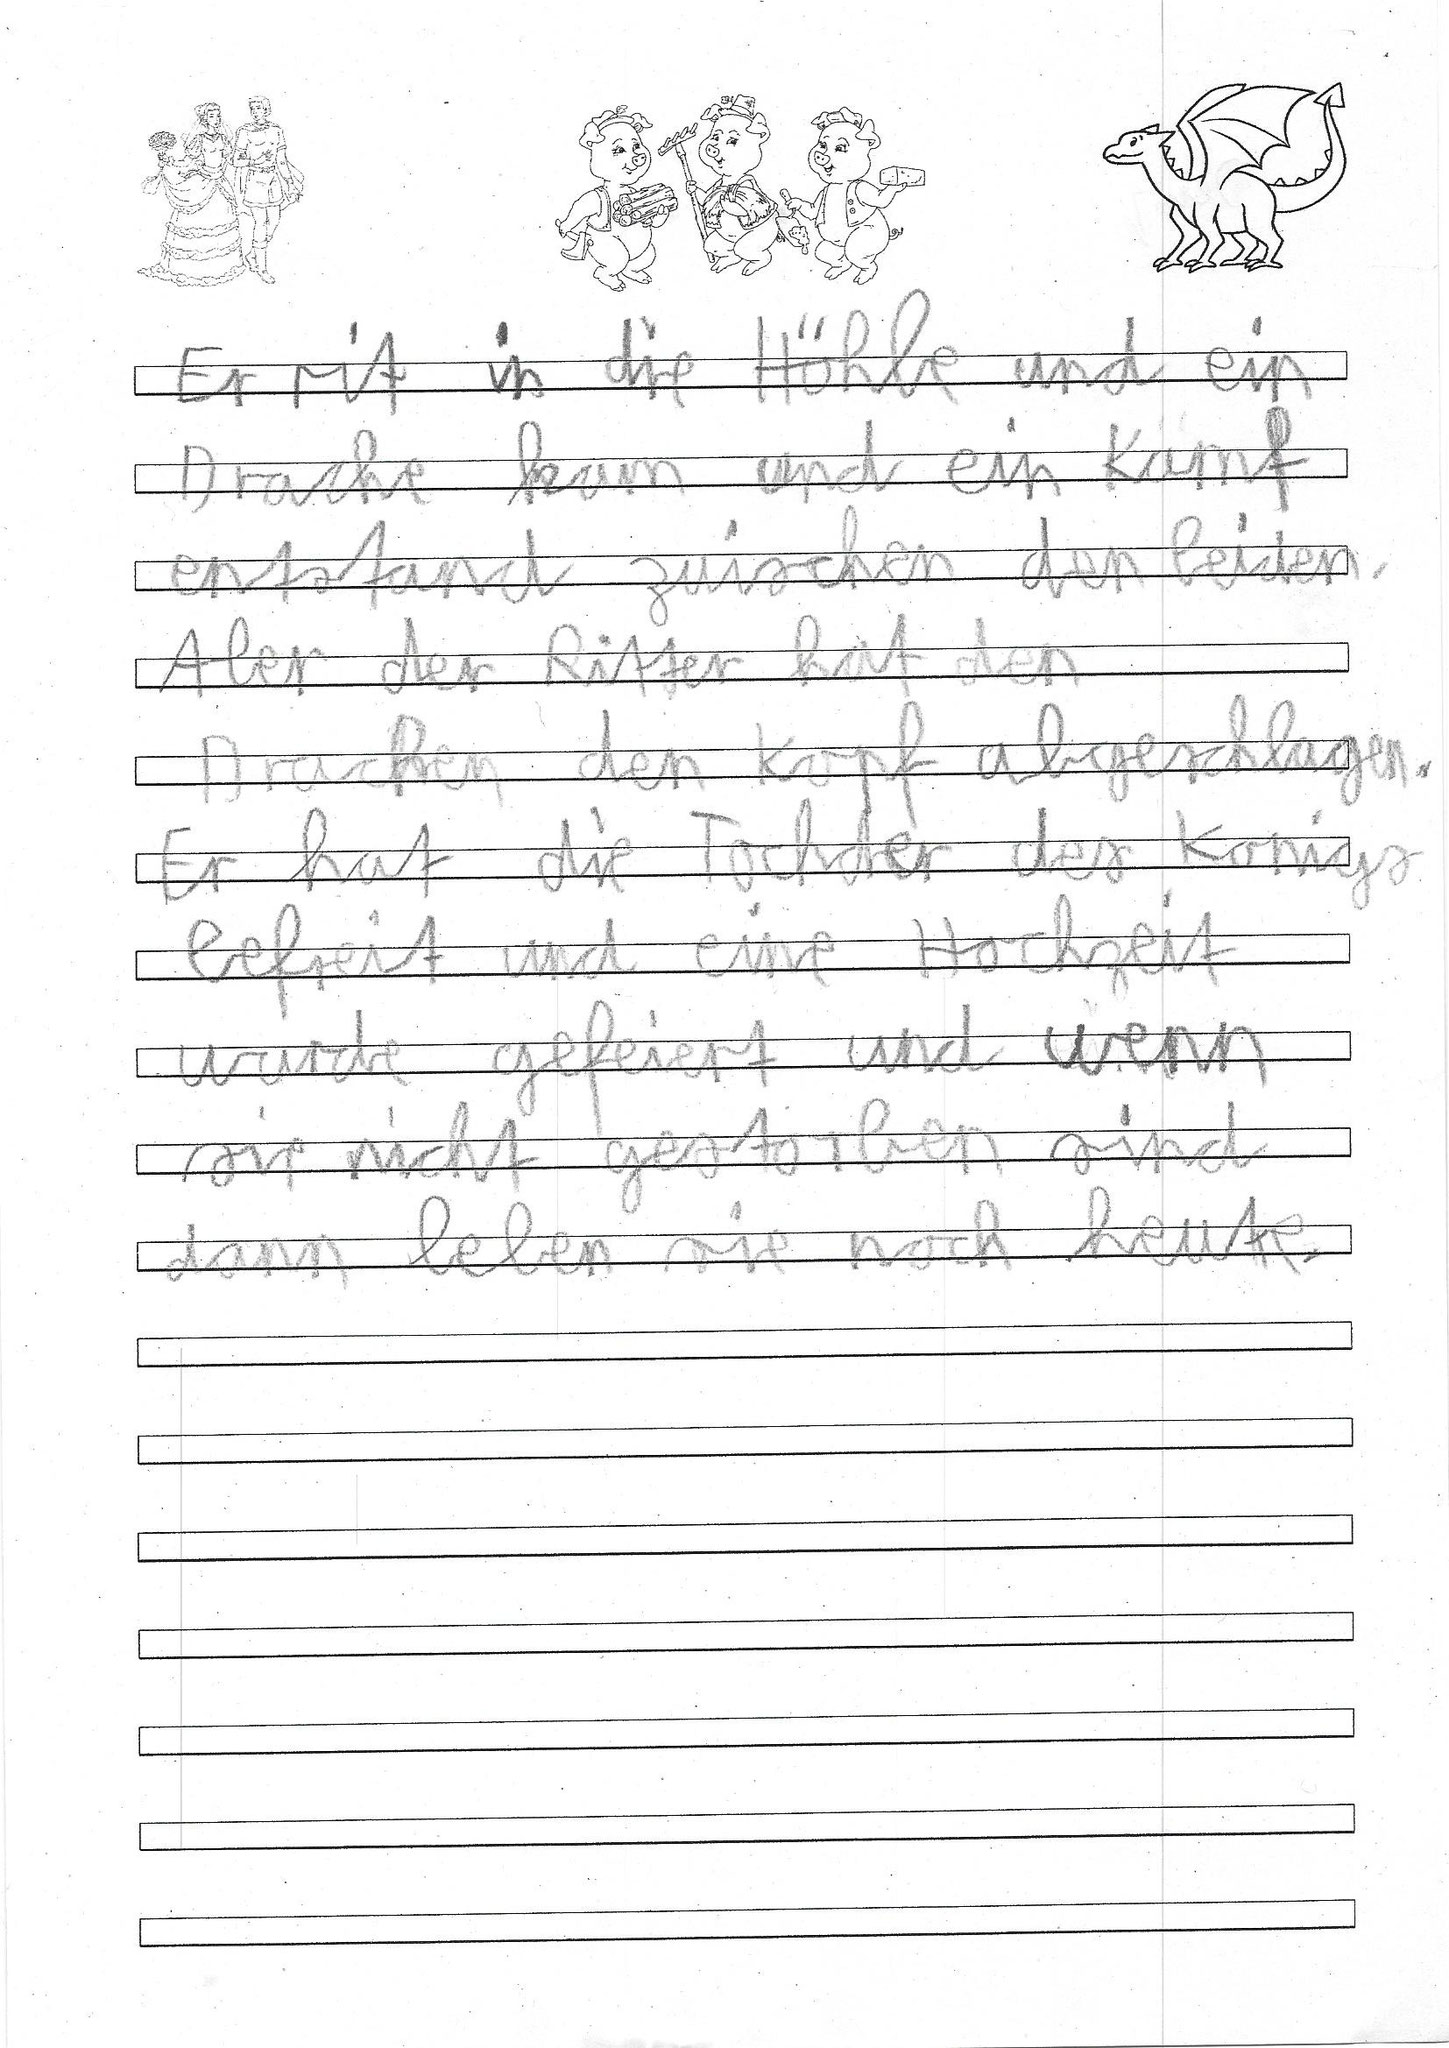 Er rit in die Höhle und ein
Drache kam und ein Kamf
entstand zwischen den beiden.
Aber der Ritter hat den
Drachen den Kopf abgeschlagen.
Er hat die Tochder des Konigs
befreit und eine Hochzeit
wurde gefeiert und wenn
sie nicht gestorben sind
dann leben sie noch heute.